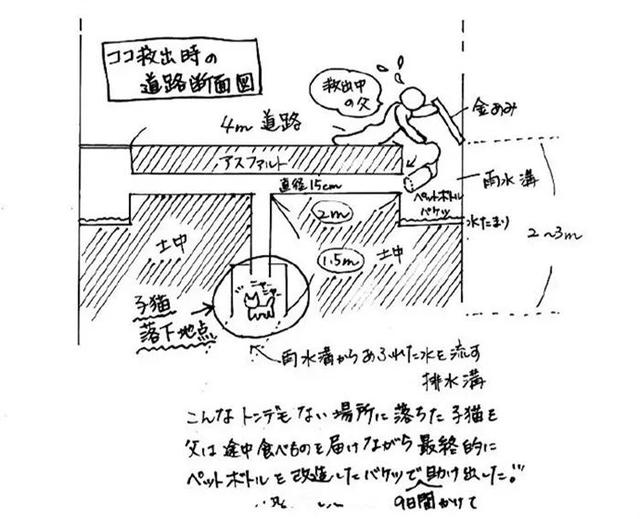 ココ救出時の
道路断面図
救出中
の父
金あみ
4m 道路
アスファルト
直径15cm
雨水溝
ペットボトル
バケツ
水たまり
2m
2~3m
土中
1.5m
土中
ニャーニャー
子猫
落下地点
雨水溝からあふれた水を流す
排水溝
こんなトンデモない場所に落ちた子猫を
父は途中食べものを届けながら最終的に
ペットボトルを改造したバケツで助け出した!!
9日間かけて